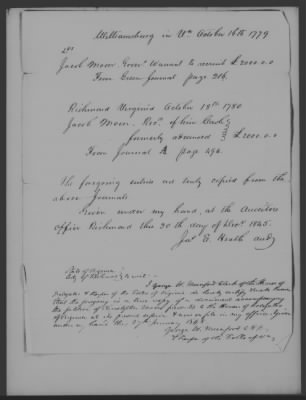 Williamsburg in Va. October 16th 1779
Jacob Moon Govr. Warrant to recruit £2000.0.0
From Green Journal page 216.
Richmond Virginia October 18th 1780
Jacob Moon Recr. of him Cash
formerly advanced £2000.0.0
From Journal A page 292.
The foregoing entries are truly copied from the
above Journals
Given under my hand, at the Auditors
Office Richmond this 30th day of Decr. 1845.
Jas. E. Heath Audr
State of Virginia
City of Richmond, to wit:
I George W. Munford Clerk of the House of
Delegates & Keeper of the Rolls of Virginia do hereby certify
that the foregoing is a true copy of a document accompanying
the petition of presented to the House of Delegates
of Virginia at its present session & now on file in my office. Given
under my hand this 27th January 1846
George W. Munford C.H.D.
& Keeper of the Rolls of Va